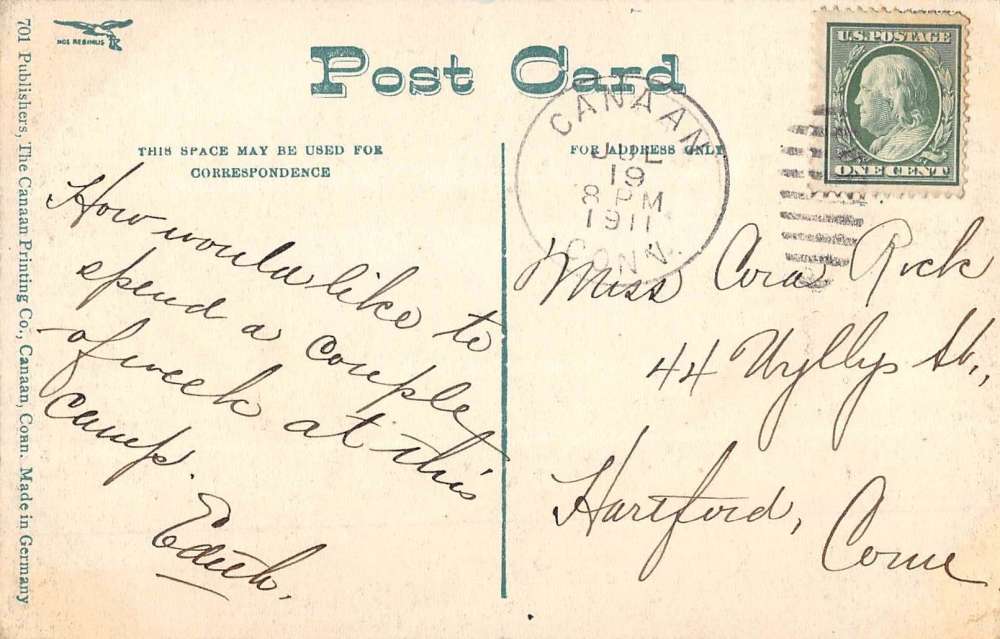 NOS REGIMUS
Post Card
U.S. POSTAGE
ONE CENT
CANAAN
JUL
19
8 PM
1911
CONN.
THIS SPACE MAY BE USED FOR
CORRESPONDENCE
FOR ADDRESS ONLY
How would like to
spend a couple
of week at this
camp.
Edith.
Miss Cora Rick
44 Wyllys St.,
Hartford,
Conn
701 Publishers, The Canaan Printing Co., Canaan, Conn. Made in Germany